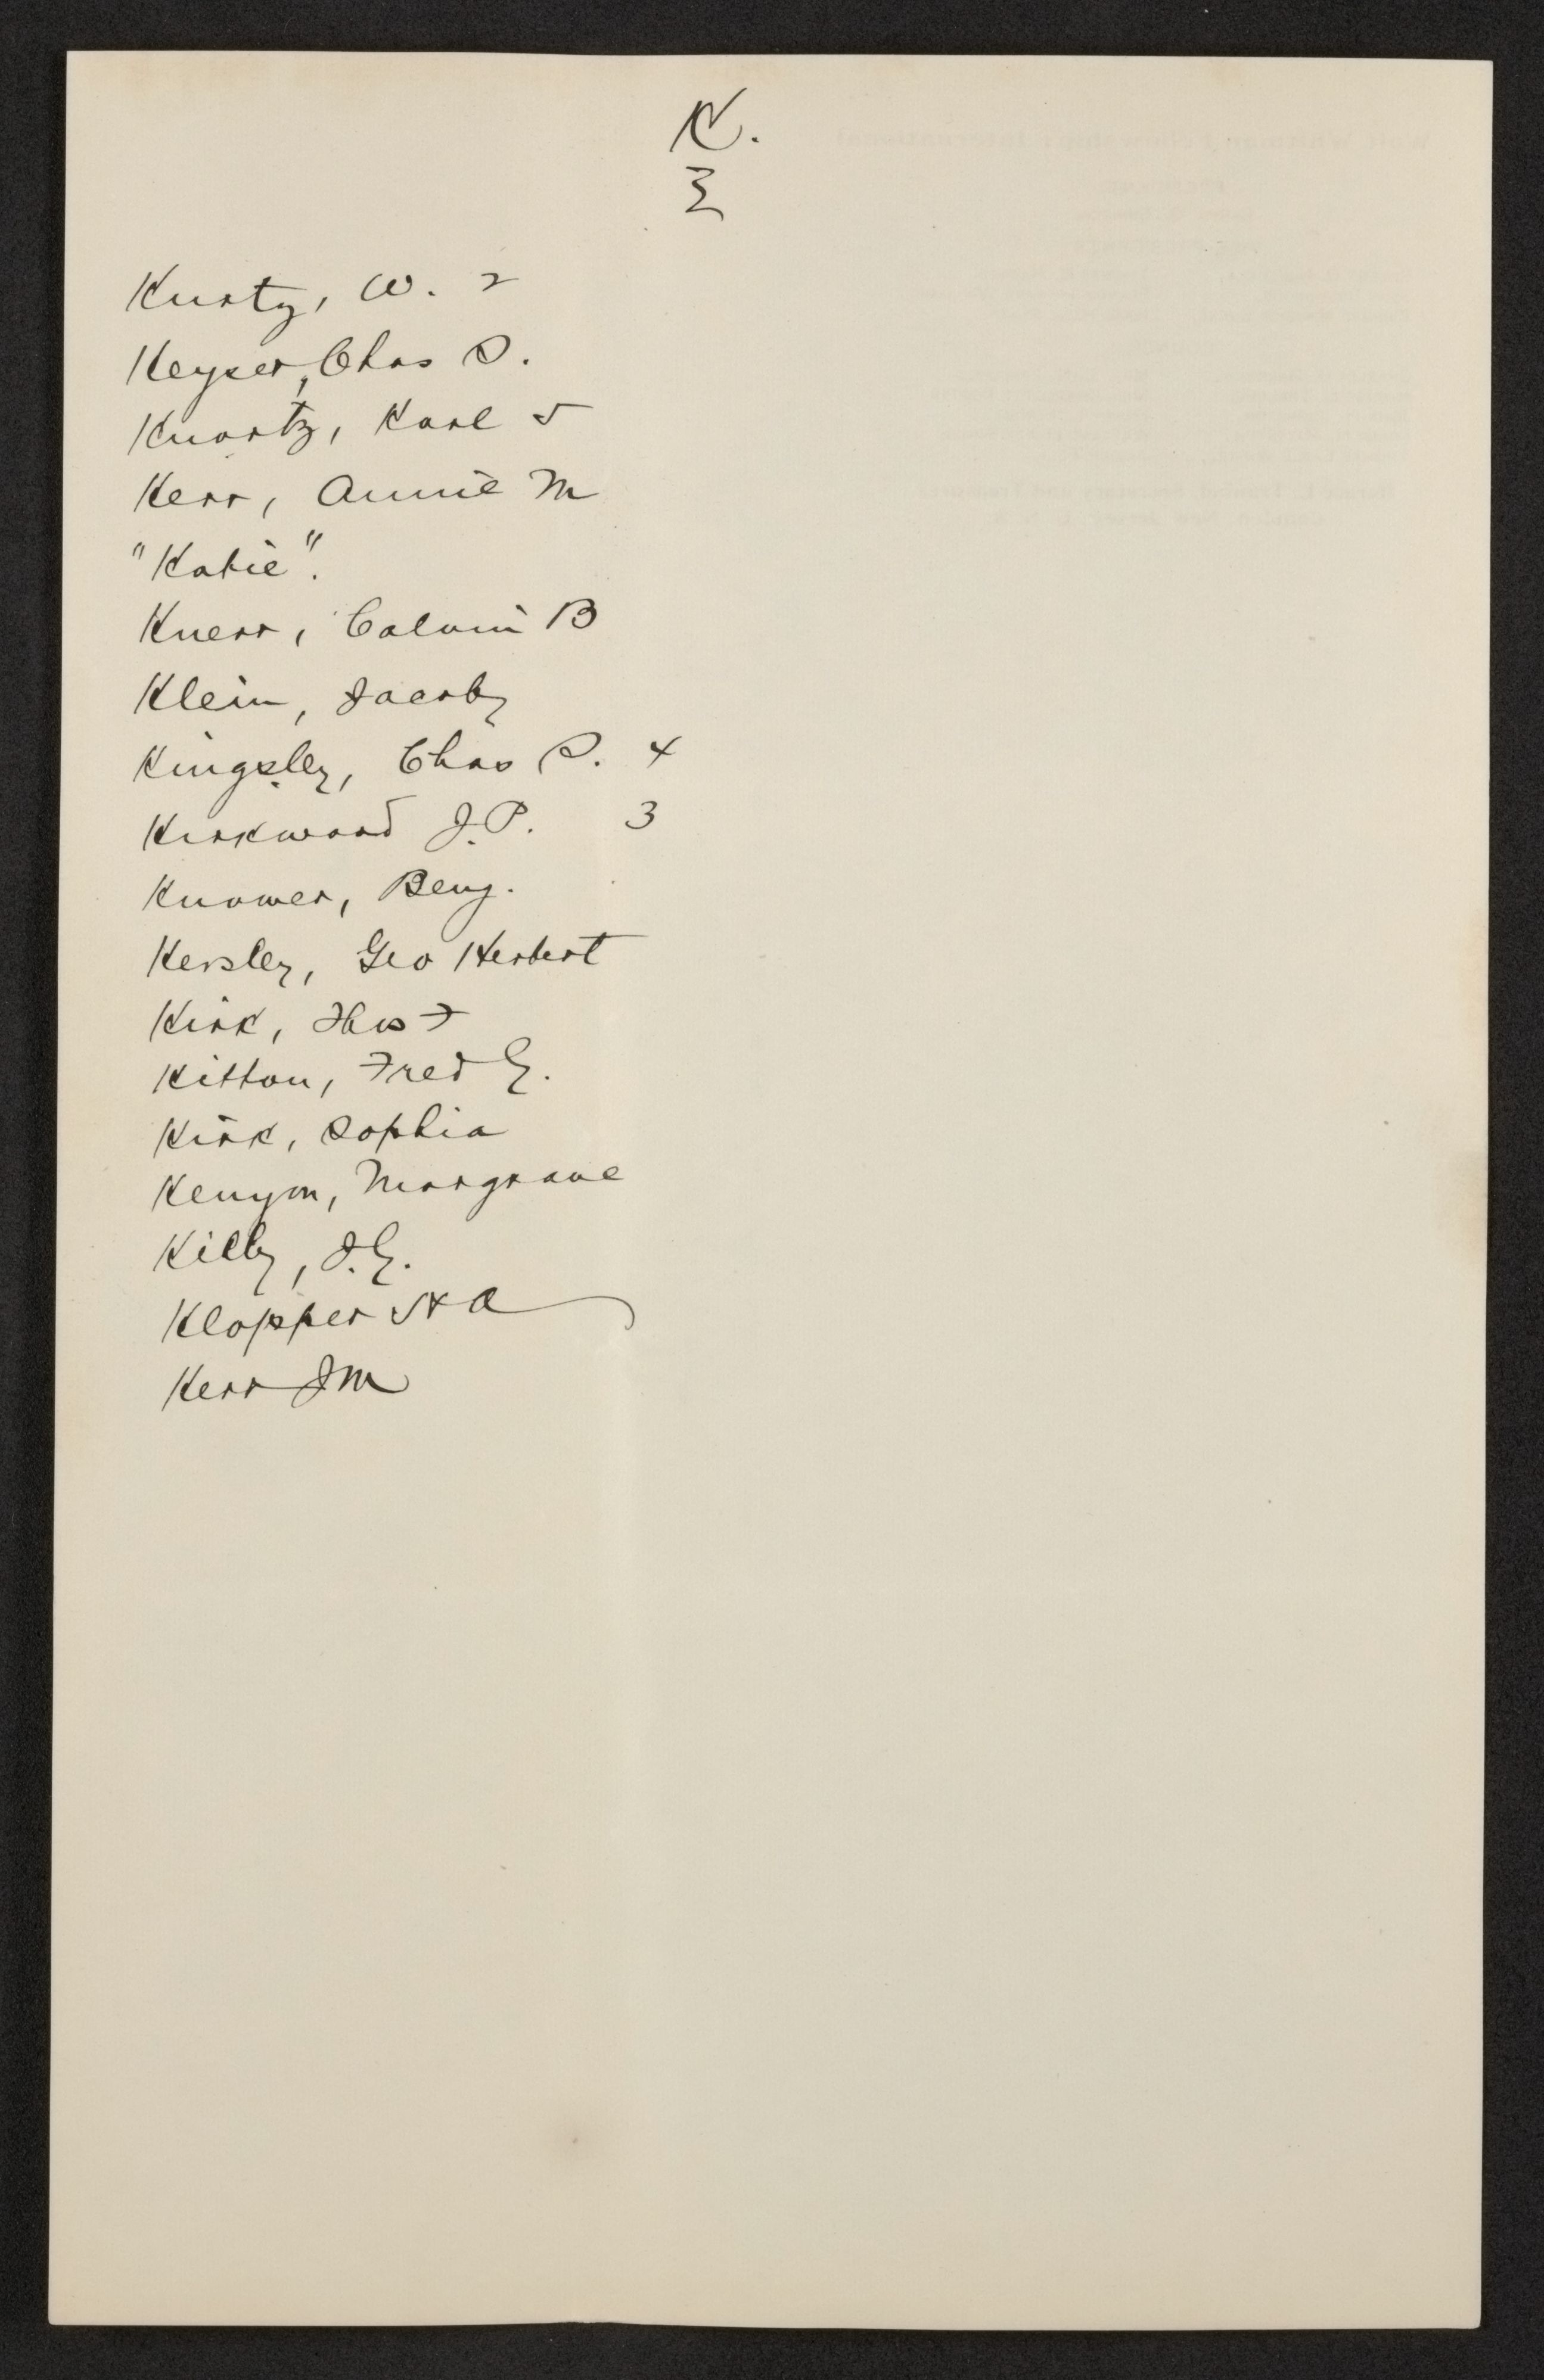 K.
Kurtz, W. 2
Keyser, Chas S.
Knortz, Karl 5
Kerr, Annie M
"Katie".
Knerr, Calvin B
Klein, Jacoby
Kingsley, Chas S. 4
Kirkwood J.P. 3
Knower, Benj.
Kersley, Geo Herbert
Kirk, Thos F
Kitton, Fred G.
Kirk, Sophia
Kenyon, Margrave
Kilby, J.G.
Klopper HA
Kerr JM